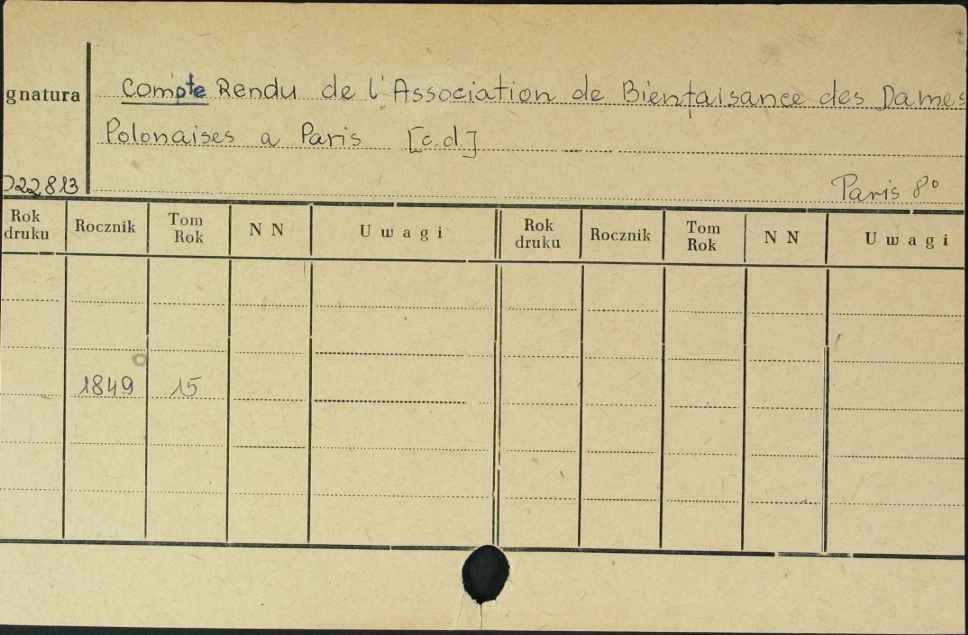 gnatura
Compte Rendu de l'Association de Bienfaisance des Dames
Polonaises a Paris [c.d.]
022813
Paris 8°
Rok druku Rocznik Tom Rok N N Uwagi Rok druku Rocznik Tom Rok N N Uwagi
1849 15